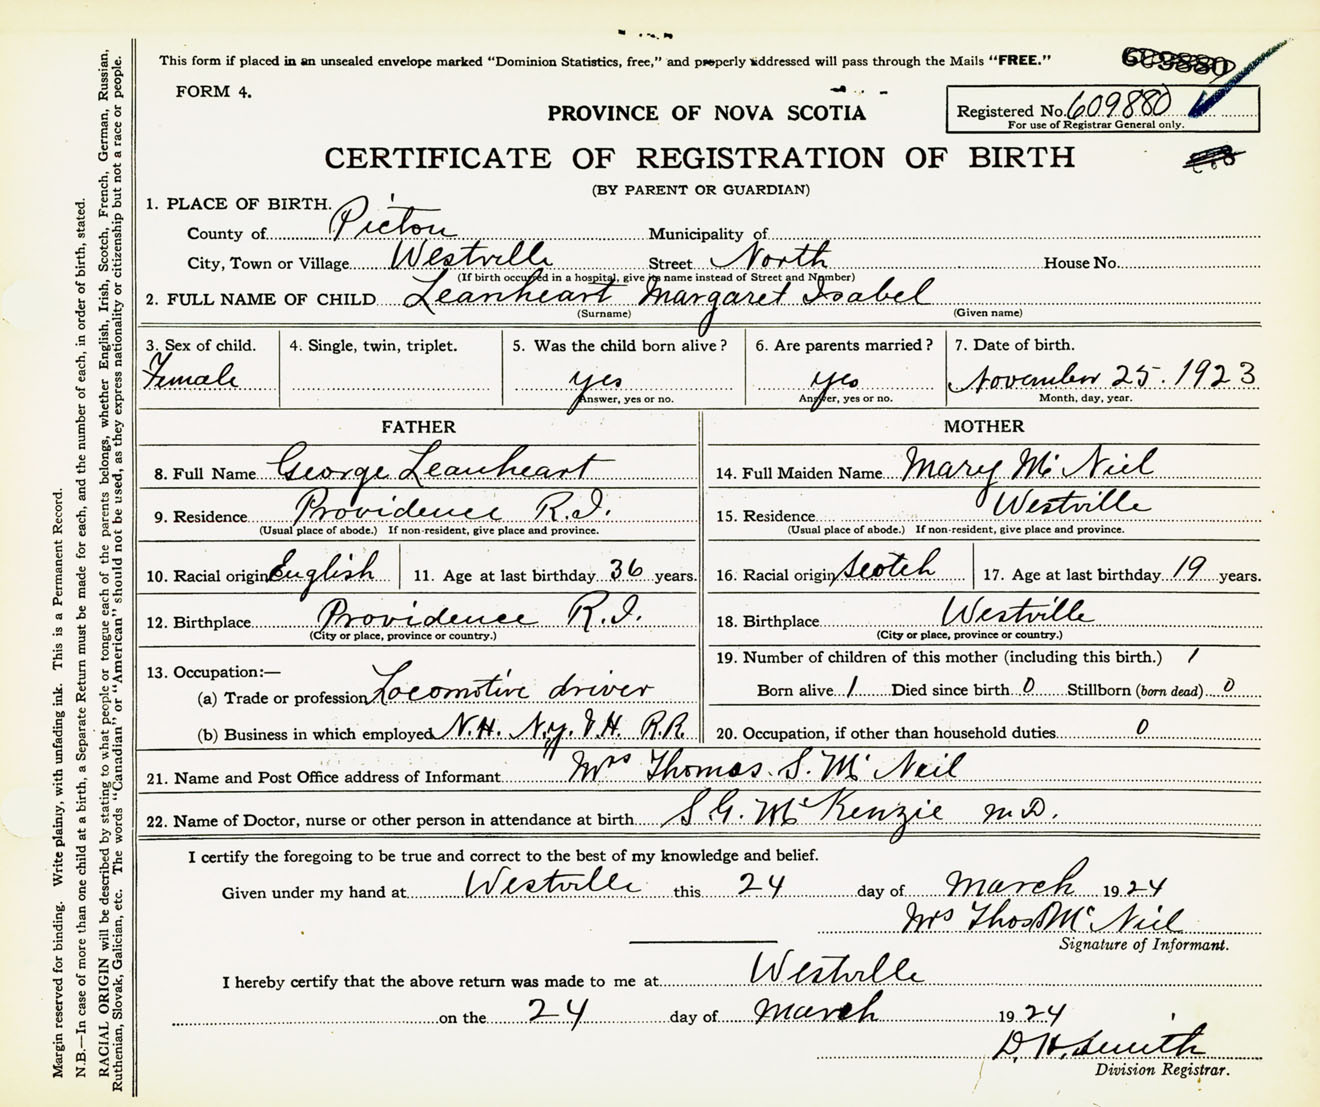 This form if placed in an unsealed envelope marked "Dominion Statistics, free," and properly addressed will pass through the Mails "FREE."
609880
FORM 4.
Registered No. 609880
For use of Registrar General only.
PROVINCE OF NOVA SCOTIA
CERTIFICATE OF REGISTRATION OF BIRTH
(BY PARENT OR GUARDIAN)
1. PLACE OF BIRTH.
County of Pictou Municipality of
City, Town or Village Westville Street North House No.
(If birth occurred in a hospital, give its name instead of Street and Number)
2. FULL NAME OF CHILD Leanheart Margaret Isabel
(Surname) (Given name)
3. Sex of child. 4. Single, twin, triplet. 5. Was the child born alive? 6. Are parents married? 7. Date of birth.
Female yes yes November 25. 1923
Answer, yes or no. Answer, yes or no. Month, day, year.
FATHER MOTHER
8. Full Name George Leanheart 14. Full Maiden Name Mary Mc Niel
9. Residence Providence R.I. 15. Residence Westville
(Usual place of abode.) If non-resident, give place and province. (Usual place of abode.) If non-resident, give place and province.
10. Racial origin English 11. Age at last birthday 36 years. 16. Racial origin Scotch 17. Age at last birthday 19 years.
12. Birthplace Providence R.I. 18. Birthplace Westville
(City or place, province or country.) (City or place, province or country.)
13. Occupation:— 19. Number of children of this mother (including this birth.) 1
(a) Trade or profession Locomotive driver Born alive 1 Died since birth 0 Stillborn (born dead) 0
(b) Business in which employed N.H. N.Y. V.H. R.R. 20. Occupation, if other than household duties 0
21. Name and Post Office address of Informant Mrs Thomas S. Mc Neil
22. Name of Doctor, nurse or other person in attendance at birth S.G. McKenzie M.D.
I certify the foregoing to be true and correct to the best of my knowledge and belief.
Given under my hand at Westville this 24 day of March 1924
Mrs Thos Mc Niel
Signature of Informant.
I hereby certify that the above return was made to me at Westville
on the 24 day of March 1924
D. H. Smith
Division Registrar.
Margin reserved for binding. Write plainly, with unfading ink. This is a Permanent Record.
N.B.—In case of more than one child at a birth, a Separate Return must be made for each, and the number of each, in order of birth, stated.
RACIAL ORIGIN will be described by stating to what people or tongue each of the parents belongs, whether English, Irish, Scotch, French, German, Russian,
Ruthenian, Slovak, Galician, etc. The words "Canadian" or "American" should not be used, as they express nationality or citizenship but not a race or people.